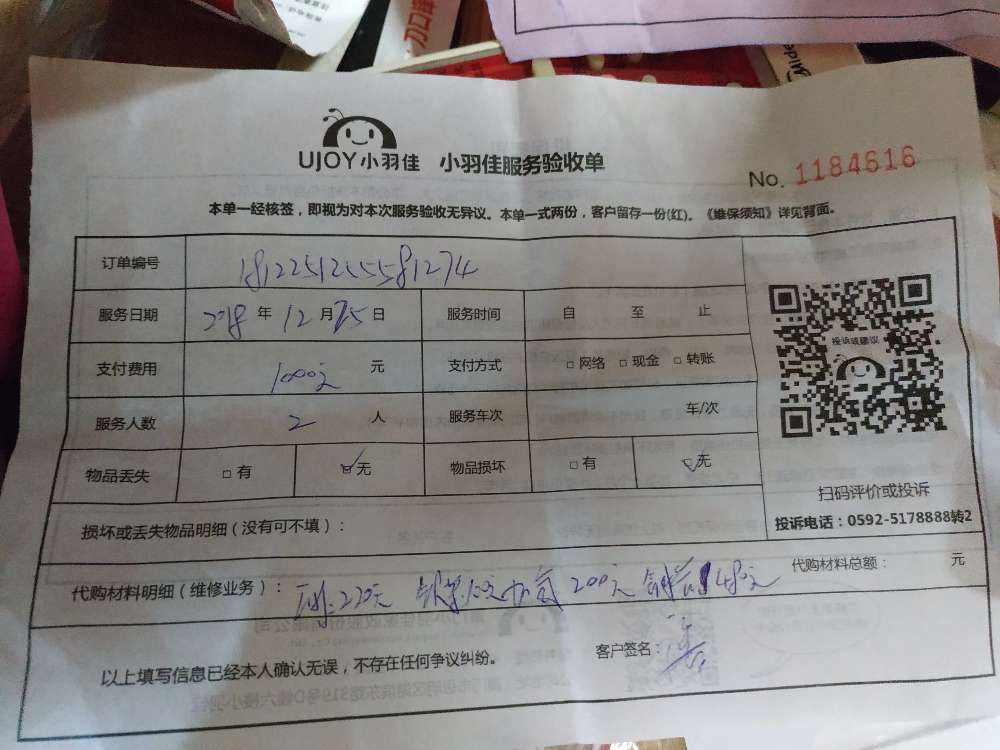 刀口
Mide
UJOY小羽佳 小羽佳服务验收单
No. 1184616
本单一经核签，即视为对本次服务验收无异议。本单一式两份，客户留存一份(红)。《维保须知》详见背面。
订单编号 1812251255581274
服务日期 2018 年 12 月 25 日 服务时间 自 至 止
支付费用 1000元 元 支付方式 □网络 □现金 □转账
服务人数 2 人 服务车次 车/次
物品丢失 □有 ☑无 物品损坏 □有 ☑无
投诉或建议
扫码评价或投诉
投诉电话：0592-5178888转2
损坏或丢失物品明细（没有可不填）：
代购材料明细（维修业务）： 220元 加氟 200元 480元 代购材料总额： 元
以上填写信息已经本人确认无误，不存在任何争议纠纷。 客户签名：